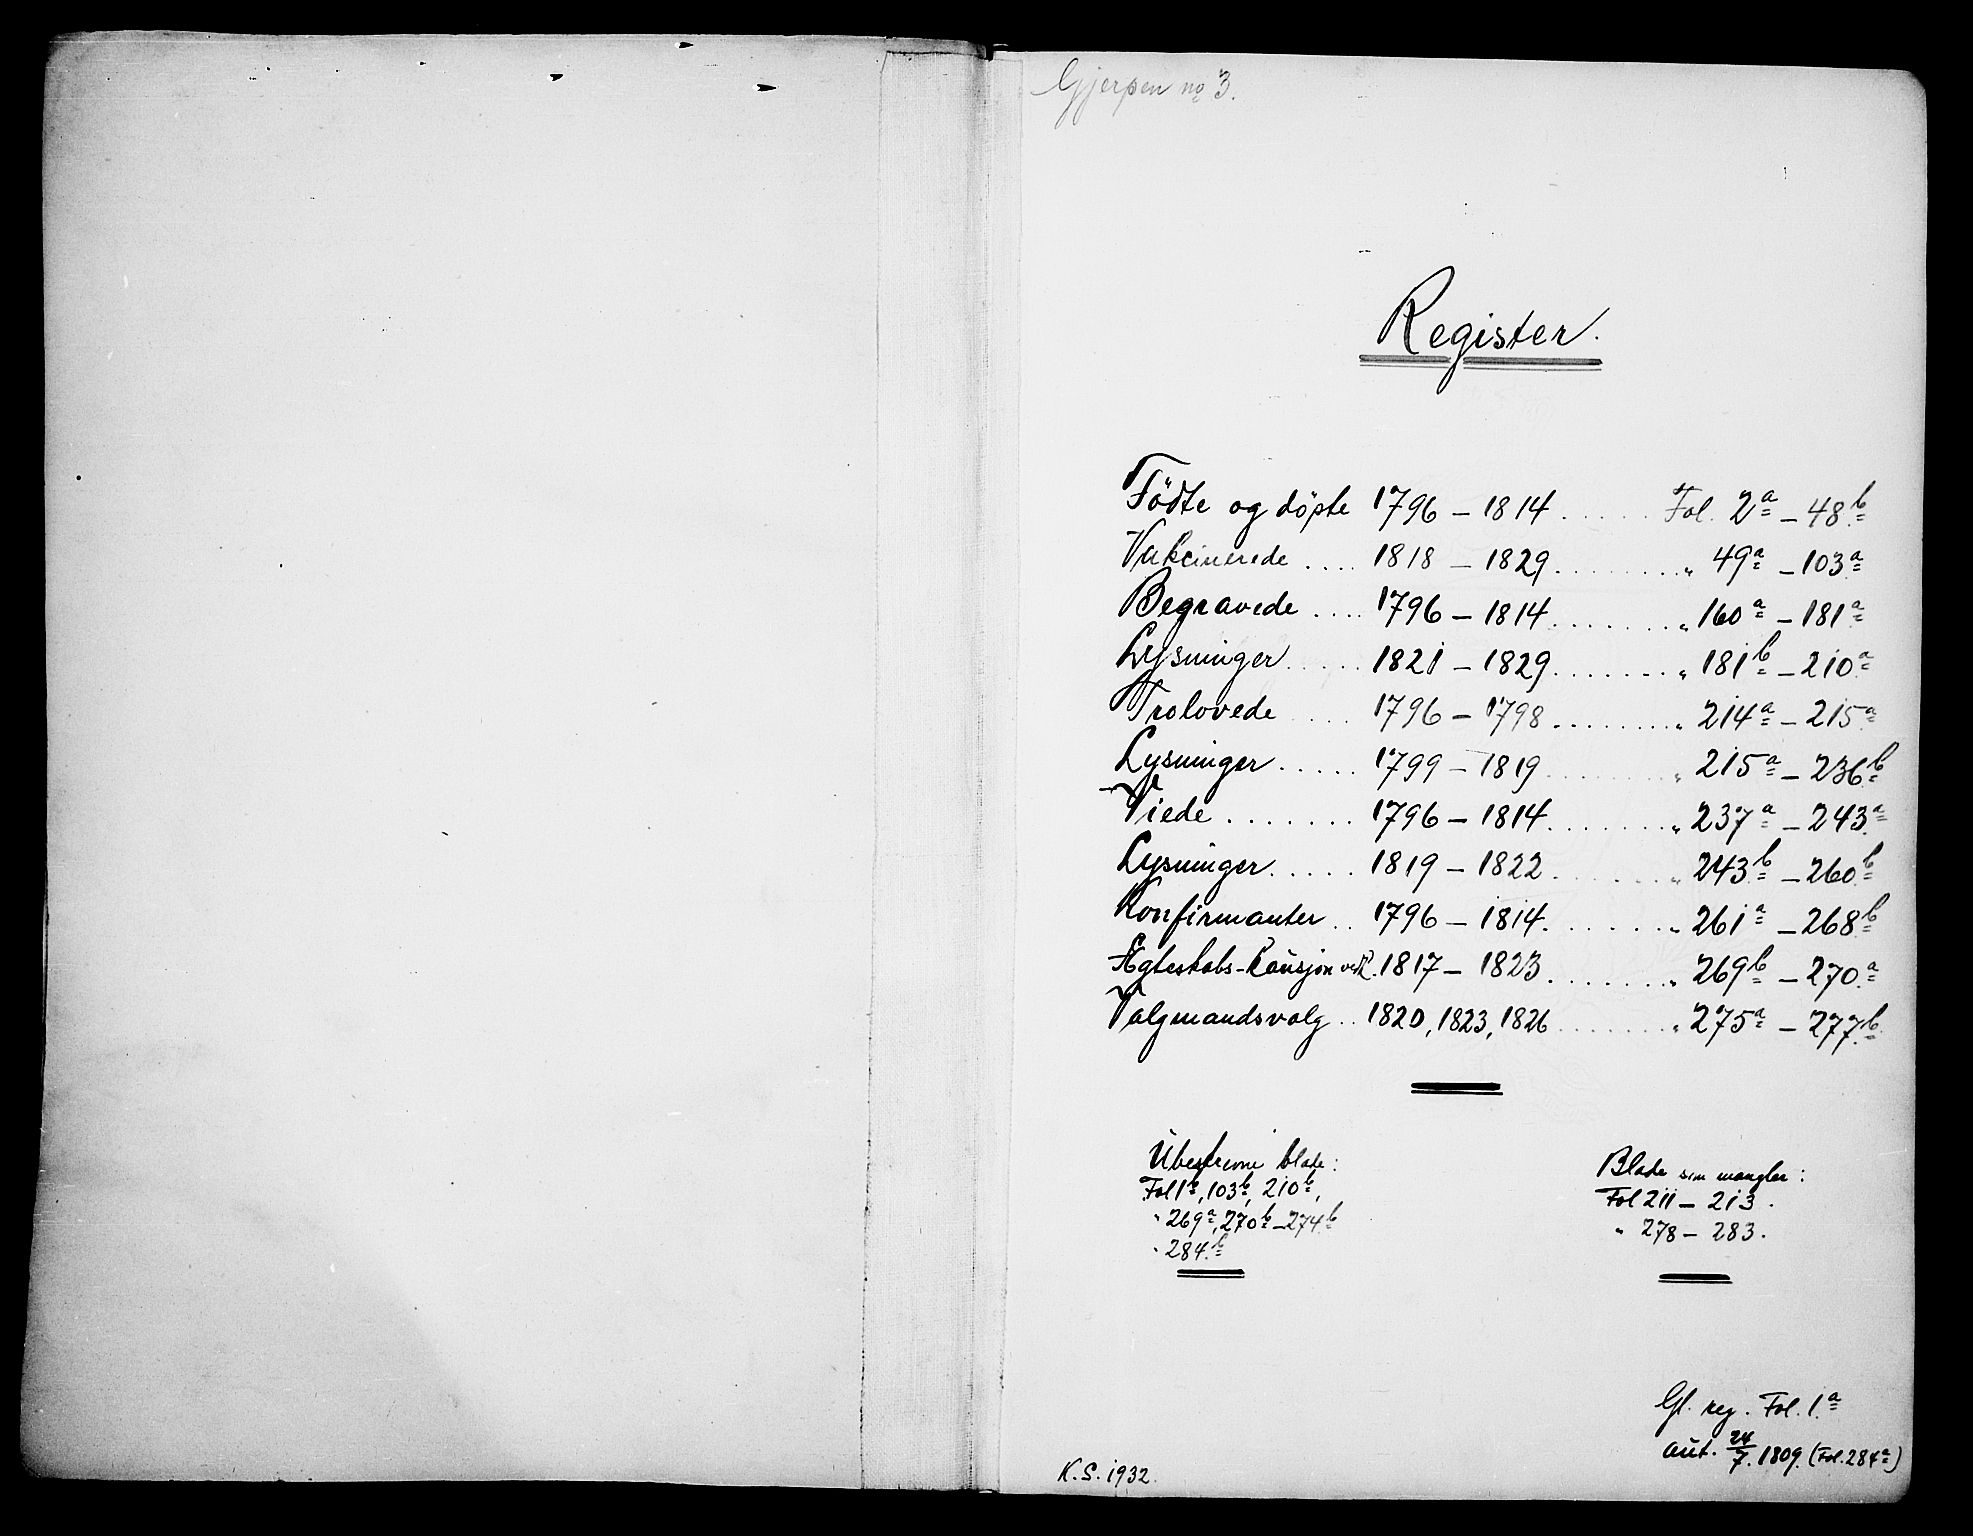 Gjerpen no 3.
Register.
Födte og döpte 1796 – 1814 ..... Fol. 2a – 48b
Vakcinerede .... 1818 – 1829 ........ " 49a – 103a
Begravede .... 1796 – 1814 ....... " 160a – 181a
Lysninger ..... 1821 – 1829 ....... " 181b – 210a
Trolovede .... 1796 – 1798 ........ " 214a – 215a
Lysninger ..... 1799 – 1819 ....... " 215a – 236b
Viede ....... 1796 – 1814 ....... " 237a – 243a
Lysninger ..... 1819 – 1822 ....... " 243b – 260b
Konfirmanter .. 1796 – 1814 ....... " 261a – 268b
Ægteskabs- 1817 – 1823 ....... " 269b – 270a
Valgmandsvalg .. 1820, 1823, 1826 ....... " 275a – 277b
Ubeskrevne blade:
Fol 1b, 103b, 210b,
" 269a, 270b – 274b
" 284b
Blade som mangler:
Fol 211 – 213.
" 278 – 283.
Gl. reg. Fol. 1a
aut. 24/7. 1809. (Fol. 284a)
K.S. 1932.